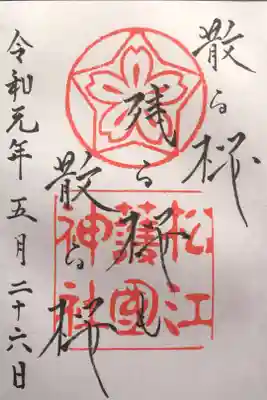 散る桜
残る桜も
散る桜
松江
護國
神社
令和元年五月二十六日